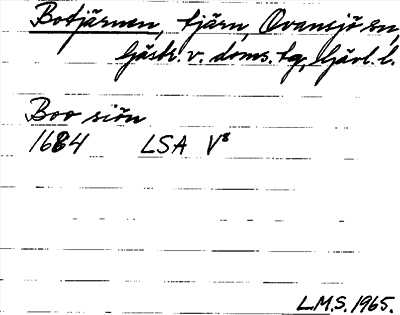 Botjärnen, tjärn, Ovansjö sn,
Gästr. v. doms. tg, Gävl. l.
Boo siön
1684 LSA V8
L.M.S. 1965.